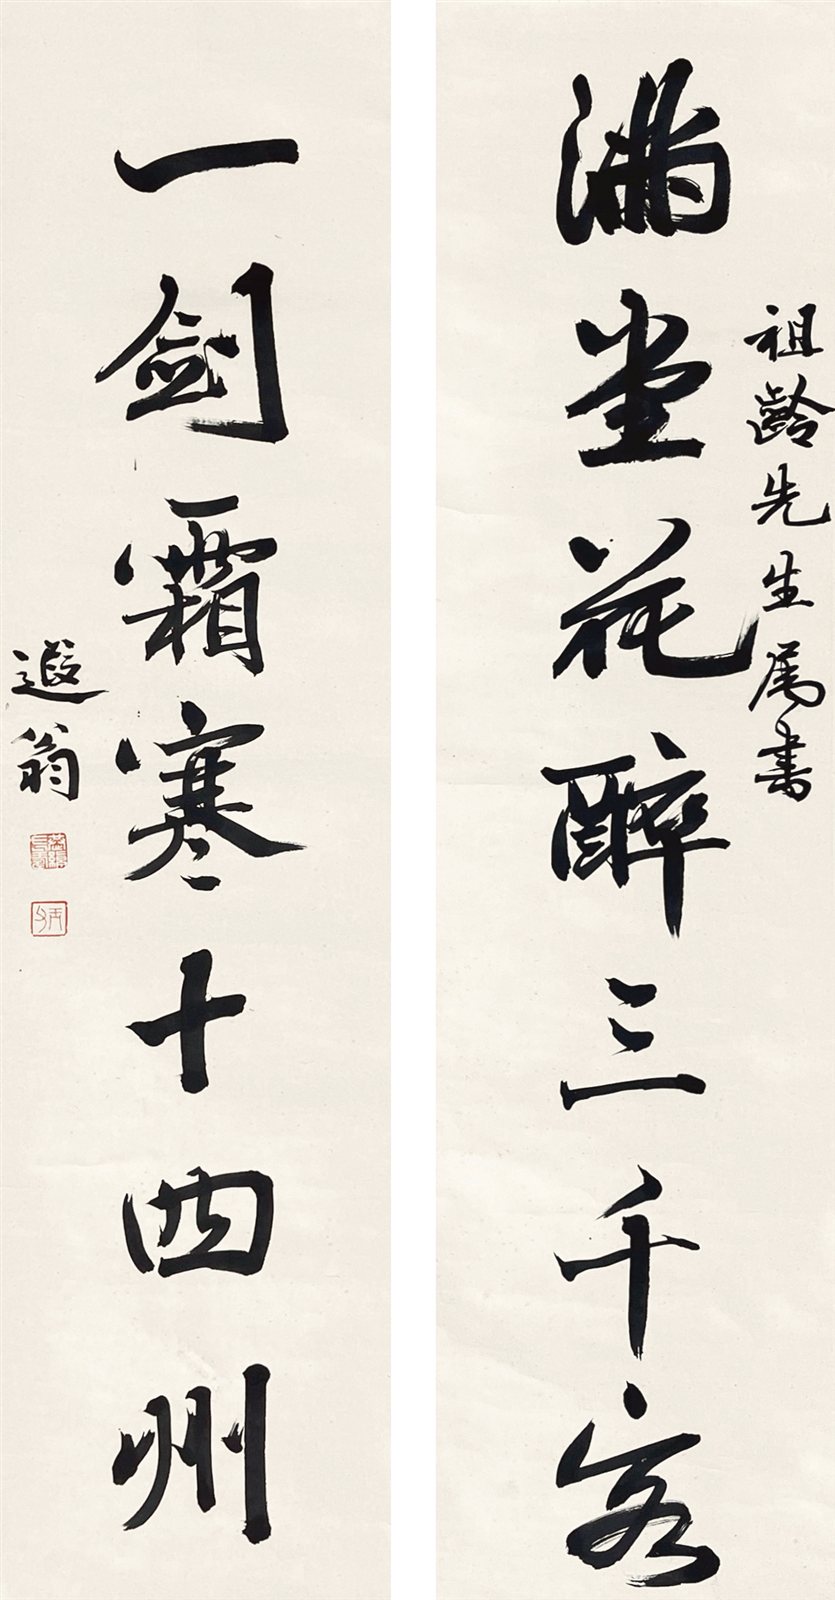 祖齡先生属書
滿堂花醉三千客
一劍霜寒十四州
遐翁